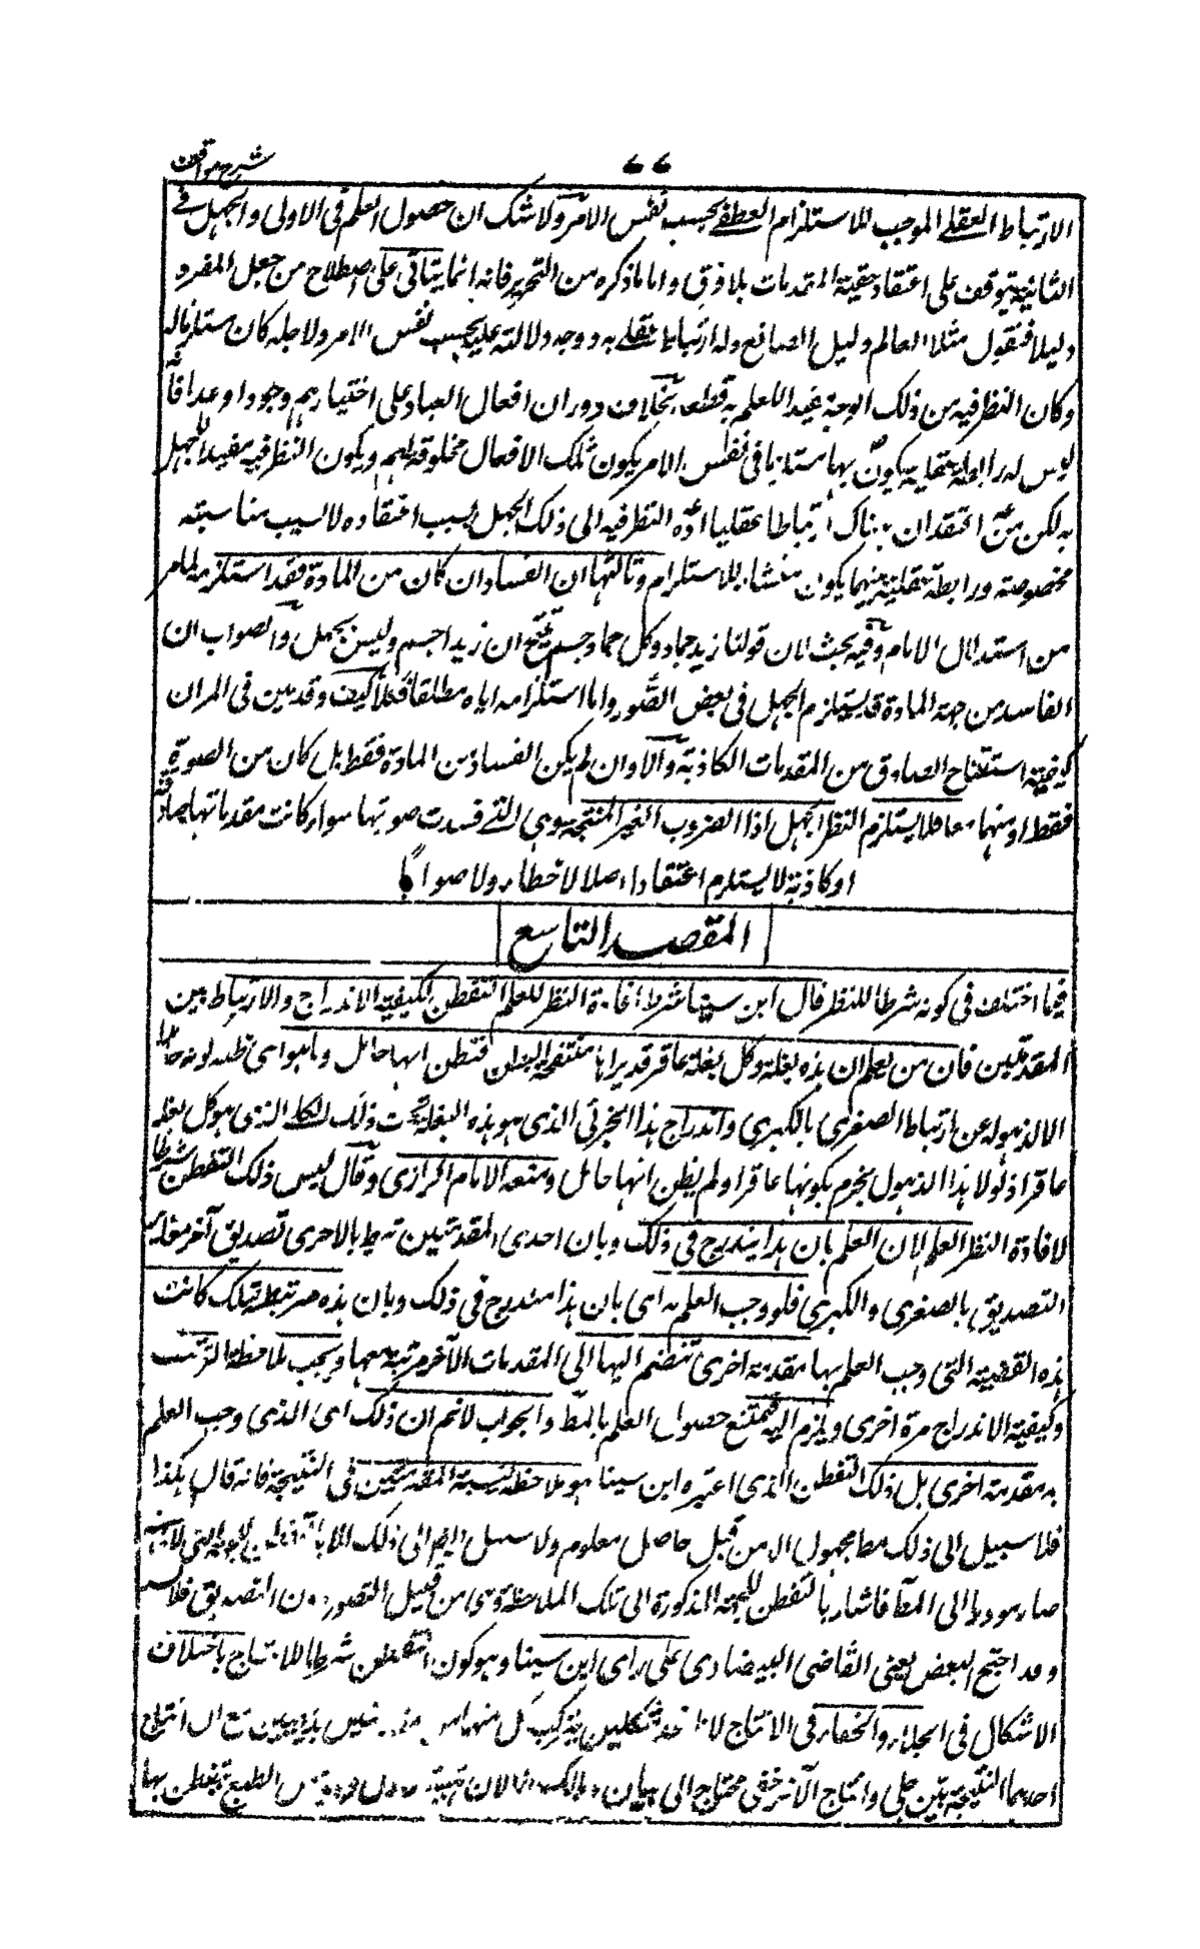 ٧٧ شرح مواقف
الارتباط العقلی الموجب للاستلزام العطفی بحسب نفس الامر ولا شک ان حصول العلم فی الاولی والجهل فی
الثانیة یتوقف علی اعتقاد حقیة المقدمات بلا فرق واما ما ذکره من التحریر فانه انما یتأتی علی اصطلاح من جعل المفرد
دلیلا فنقول مثلا العالم دلیل الصانع وله ارتباط عقلی به ووجه دلالته علیه بحسب نفس الامر ولاجله کان مستلزما له
وکان النظر فیه من ذلک الوجه یفید العلم به قطعا بخلاف دوران افعال العباد علی اختیارهم وجودا وعدما فانه
لیس له رابطة عقلیة یکون بها مستلزما فی نفس الامر لکون تلک الافعال مخلوقة لهم ویکون النظر فیه مفیدا للجهل
به لکن من اعتقد ان هناک ارتباطا عقلیا اداه النظر فیه الی ذلک الجهل بسبب اعتقاده لا بسبب مناسبة
مخصوصة ورابطة عقلیة بینهما یکون منشاء للاستلزام وثالثها ان الفساد ان کان من المادة فقد استلزمه لما مر
من استدلال الامام وفیه بحث لان قولنا زید حماد وکل حماد جسم ینتج ان زیدا جسم ولیس بجهل والصواب ان
الفاسد من جهة المادة قد یستلزم الجهل فی بعض الصور واما استلزامه ایاه مطلقا فلا کیف وقد بین فی المیزان
کیفیة استنتاج الصادق من المقدمات الکاذبة والا وان لم یکن الفساد من المادة فقط بل کان من الصورة
فقط او منهما معا فلا یستلزم النظر الجهل اذا الضروب الغیر المنتجة هی التی فسدت صورتها سواء کانت مقدماتها صادقة
او کاذبة لا یستلزم اعتقادا اصلا لا خطاء ولا صوابا
المقصد التاسع
فیما اختلف فی کونه شرطا للنظر قال ابن سینا شرط افادة النظر للعلم التفطن لکیفیة الاندراج والارتباط بین
المقدمتین فان من یعلم ان هذه بغلة وکل بغلة عاقر قد یراها منتفخة البطن فتظن انها حامل وما هو ای ظنه لونه حاملا
الا لذهوله عن ارتباط الصغری بالکبری واندراج هذا الجزئی الذی هو هذه البغلة تحت ذلک الکلی الذی هو کل بغلة
عاقرا اذ لولا هذا الذهول یجزم بکونها عاقرا ولم یظن انها حامل ومنعه الامام الرازی وقال لیس ذلک التفطن شرطا
لافادة النظر العلم لان العلم بان هذا یندرج فی ذلک وبان احدی المقدمتین مرتبط بالاخری تصدیق آخر مغایر
التصدیق بالصغری والکبری فلو وجب العلم به ای بان هذا مندرج فی ذلک وبان هذه مرتبطة بتلک کانت
هذه القضیة التی وجب العلم بها مقدمة اخری تنضم الیها الی المقدمات الآخر مرتبة معها ویجب ملاحظة الترتیب
وکیفیة الاندراج مرة اخری ویلزم الیه فیمتنع حصول العلم بالمط والجواب لا نم ان ذلک ای الذی وجب العلم
به مقدمة اخری بل ذلک التفطن الذی اعتبره ابن سینا هو ملاحظة نسبة المقدمتین فی النتیجة فانه قال هکذا
فلا سبیل الی ذلک مط مجهول الا من قبل حاصل معلوم ولا سبیل ایضا الی ذلک الا بالتفطن للجهة التی لاجلها
صار مودیا الی المط فاشار بالتفطن للجهة المذکورة الی تلک الملاحظة وهی من قبیل التصور دون التصدیق فلا
وقد احتج البعض یعنی القاضی البیضاوی علی رای ابن سینا وهو کون التفطن شرطا للانتاج باختلاف
الاشکال فی الجلاء والخفاء فی الانتاج
احدهما النتیجة بین جلی وانتاج الآخر خفی محتاج الی بیان